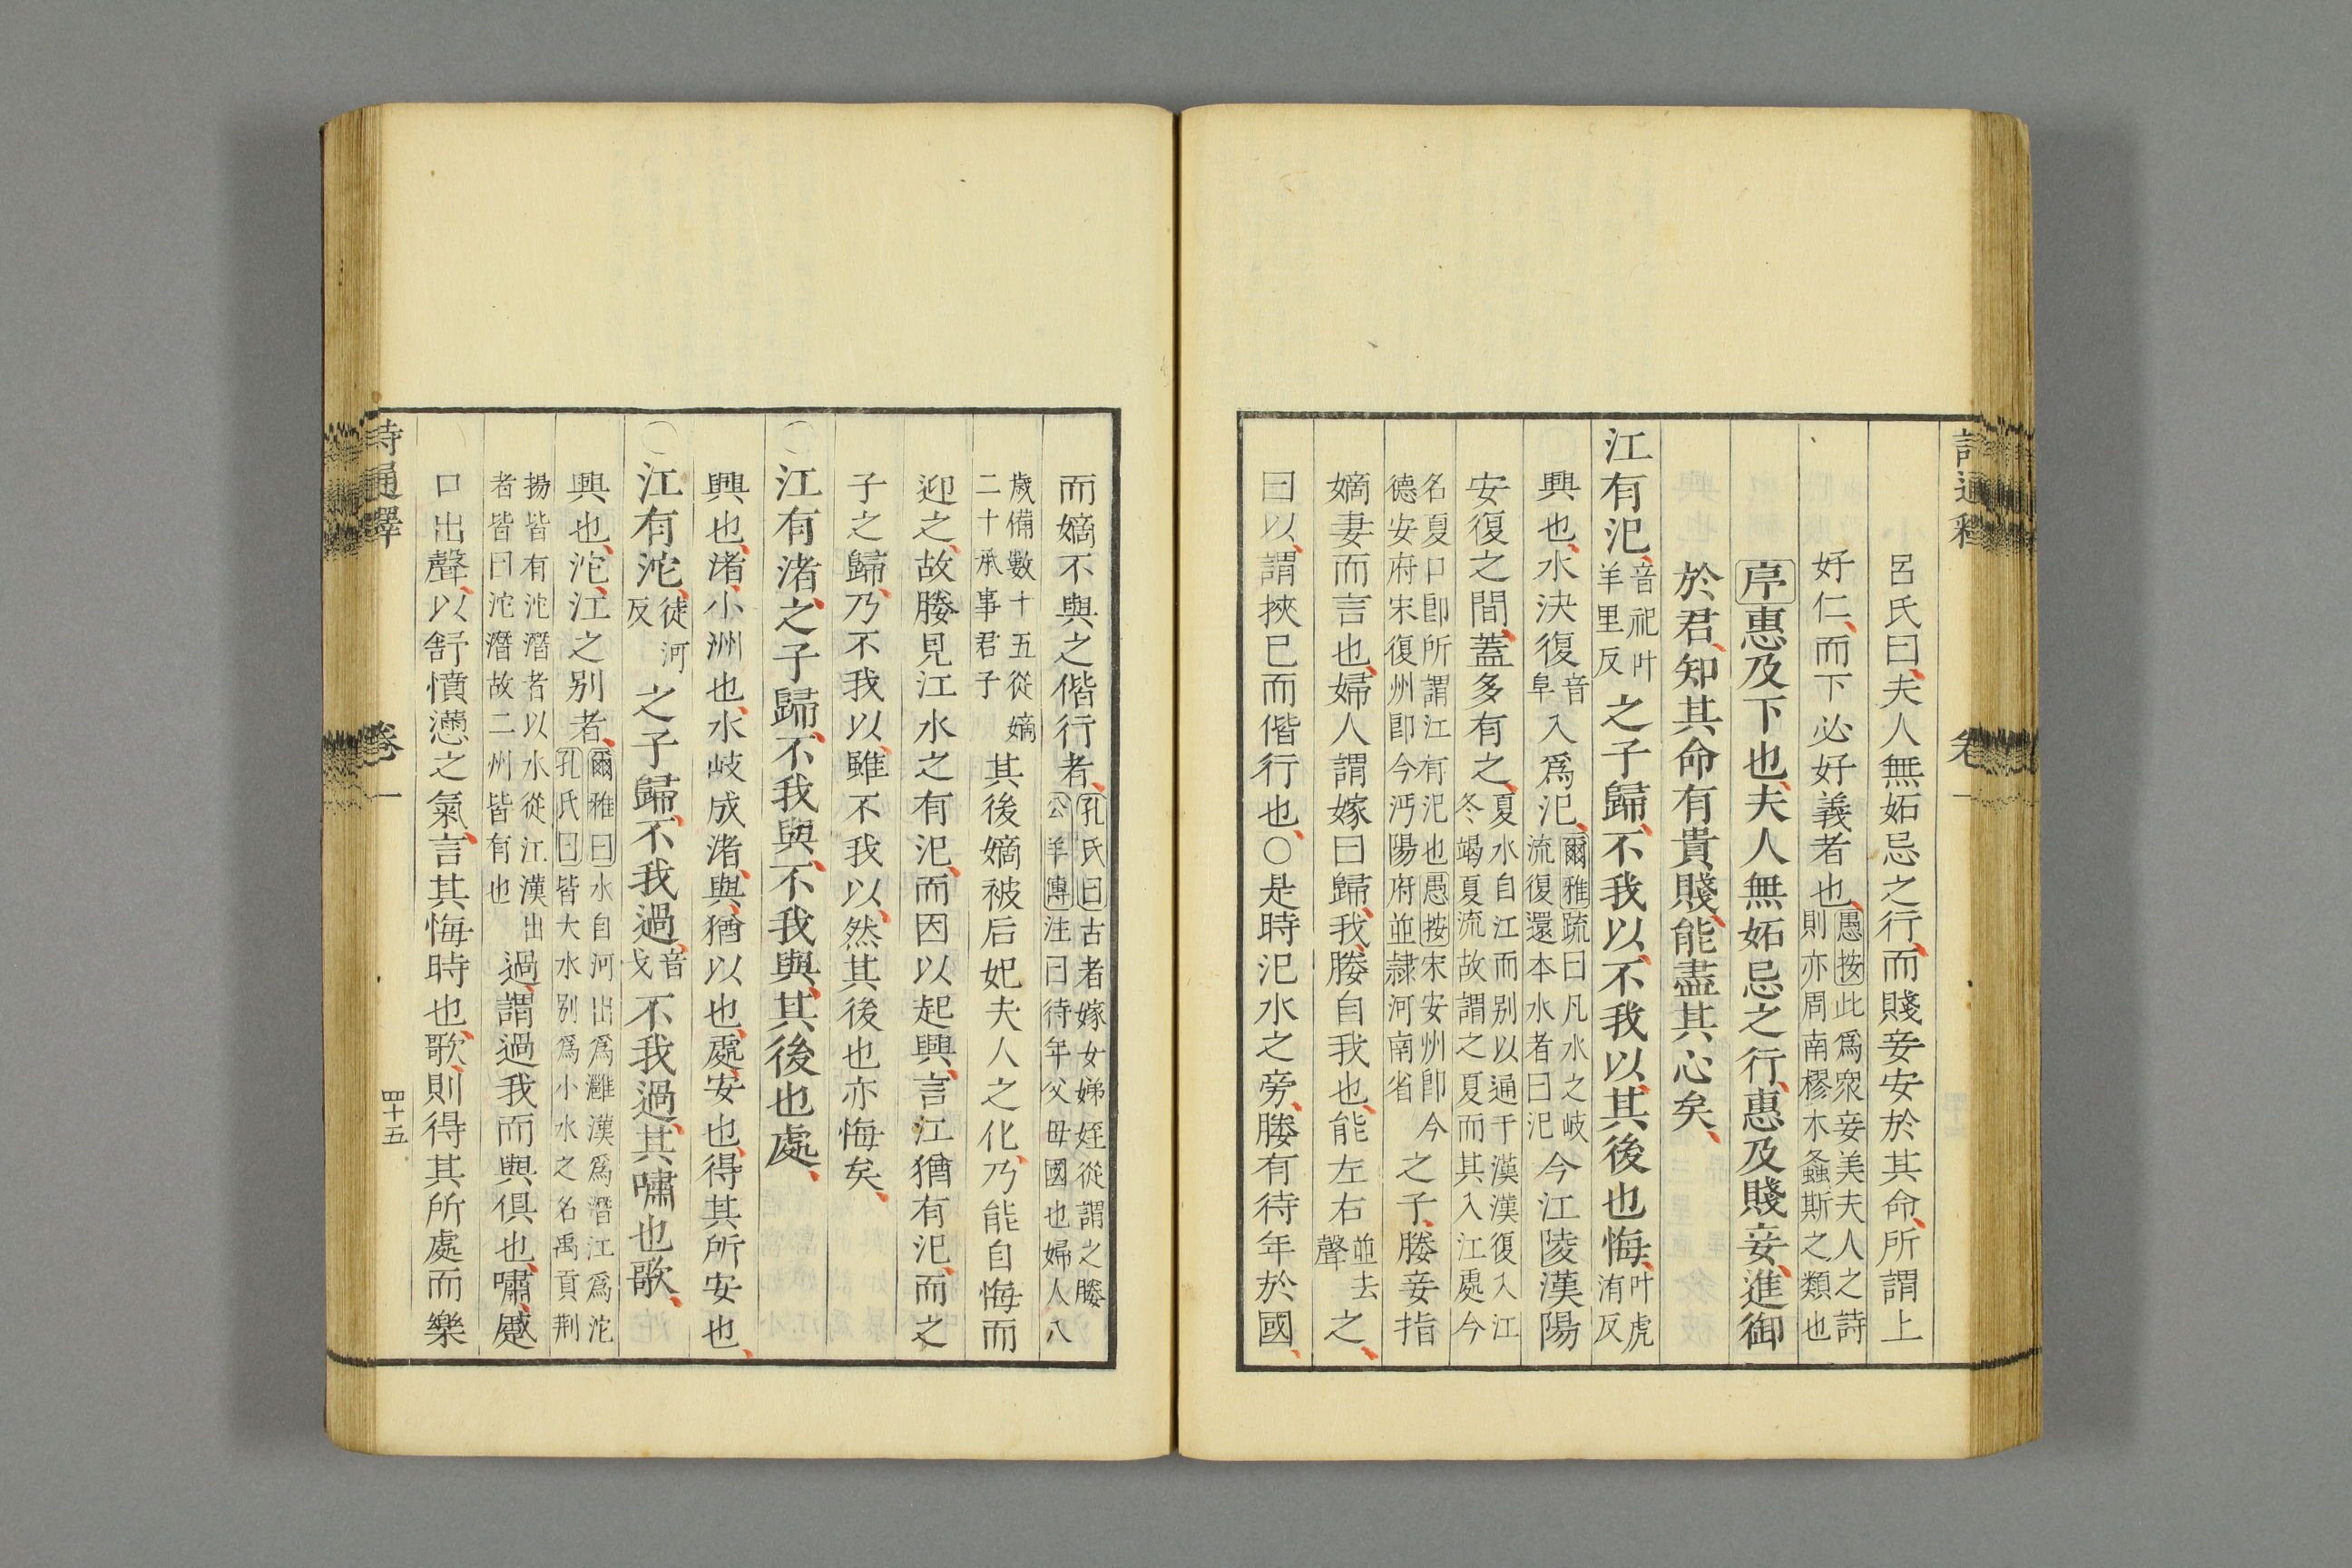 呂氏曰夫人無妬忌之行而賤妾安於其命所謂上
好仁而下必好義者也愚按此爲衆妾美夫人之詩則亦周南樛木螽斯之類也
序惠及下也夫人無妬忌之行惠及賤妾進御
於君知其命有貴賤能盡其心矣
江有汜音祀叶羊里反之子歸不我以不我以其後也悔叶虎洧反
興也水決復音阜入爲汜爾雅疏曰凡水之岐流復還本水者曰汜今江陵漢陽
安復之間蓋多有之夏水自江而别以通于漢漢復入江冬竭夏流故謂之夏而其入江處今
名夏口卽所謂江有汜也愚按宋安州卽今德安府宋復州卽今沔陽府並隷河南省之子媵妾指
嫡妻而言也婦人謂嫁曰歸我媵自我也能左右並去聲之
曰以謂挾已而偕行也○是時汜水之旁媵有待年於國
而嫡不與之偕行者孔氏曰古者嫁女娣姪從謂之媵公羊傳注曰待年父母國也婦人八
歲備數十五從嫡二十承事君子其後嫡被后妃夫人之化乃能自悔而
迎之故媵見江水之有汜而因以起興言江猶有汜而之
子之歸乃不我以雖不我以然其後也亦悔矣
○江有渚之子歸不我與不我與其後也處
興也渚小洲也水岐成渚與猶以也處安也得其所安也
○江有沱徒河反之子歸不我過音戈不我過其嘯也歌
興也沱江之别者爾雅曰水自河出爲灉漢爲潛江爲沱孔氏曰皆大水别爲小水之名禹貢荆
揚皆有沱潛者以水從江漢出者皆曰沱潛故二州皆有也過謂過我而與俱也嘯蹙
口出聲以舒憤懣之氣言其悔時也歌則得其所處而樂
詩通釋 卷一 四十五